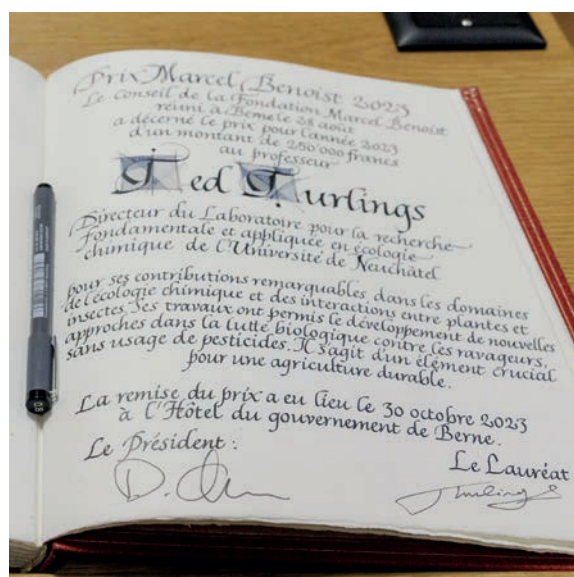 Prix Marcel Benoist 2023
Le Conseil de la Fondation Marcel Benoist
réuni à Berne le 28 août
a décerné le prix pour l'année 2023
d'un montant de 250'000 francs
au professeur
Ted Turlings
Directeur du Laboratoire pour la recherche
fondamentale et appliquée en écologie
chimique de l'Université de Neuchâtel
pour ses contributions remarquables dans les domaines
de l'écologie chimique et des interactions entre plantes et
insectes. Ses travaux ont permis le développement de nouvelles
approches dans la lutte biologique contre les ravageurs,
sans usage de pesticides. Il s'agit d'un élément crucial
pour une agriculture durable.
La remise du prix a eu lieu le 30 octobre 2023
à l'Hôtel du gouvernement de Berne.
Le Président :
Le Lauréat
Turlings